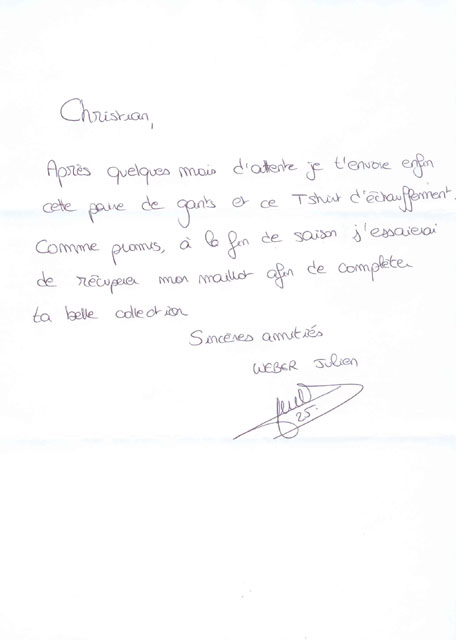 Christian,
Après quelques mois d'attente je t'envoie enfin
cette paire de gants et ce Tshirt d'échauffement.
Comme promis, à la fin de saison j'essaierai
de récupérer mon maillot afin de compléter
ta belle collection
Sincères amitiés
WEBER Julien
25.